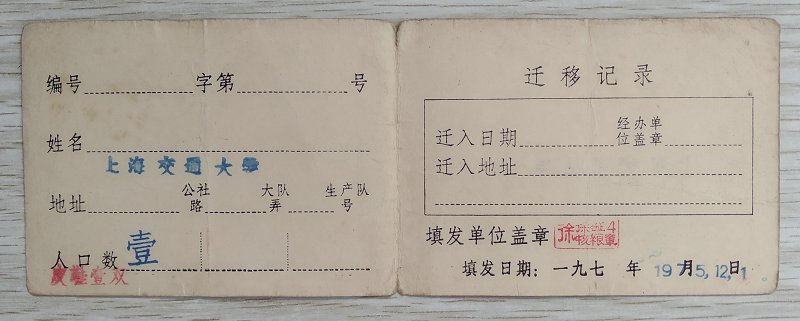 编号 字第 号
姓名
上海交通大学
公社 大队 生产队
地址 路 弄 号
人口数 壹
壹双
迁移记录
迁入日期 经办单位盖章
迁入地址
填发单位盖章 徐
填发日期：一九七 年 1975,12,1 月 日